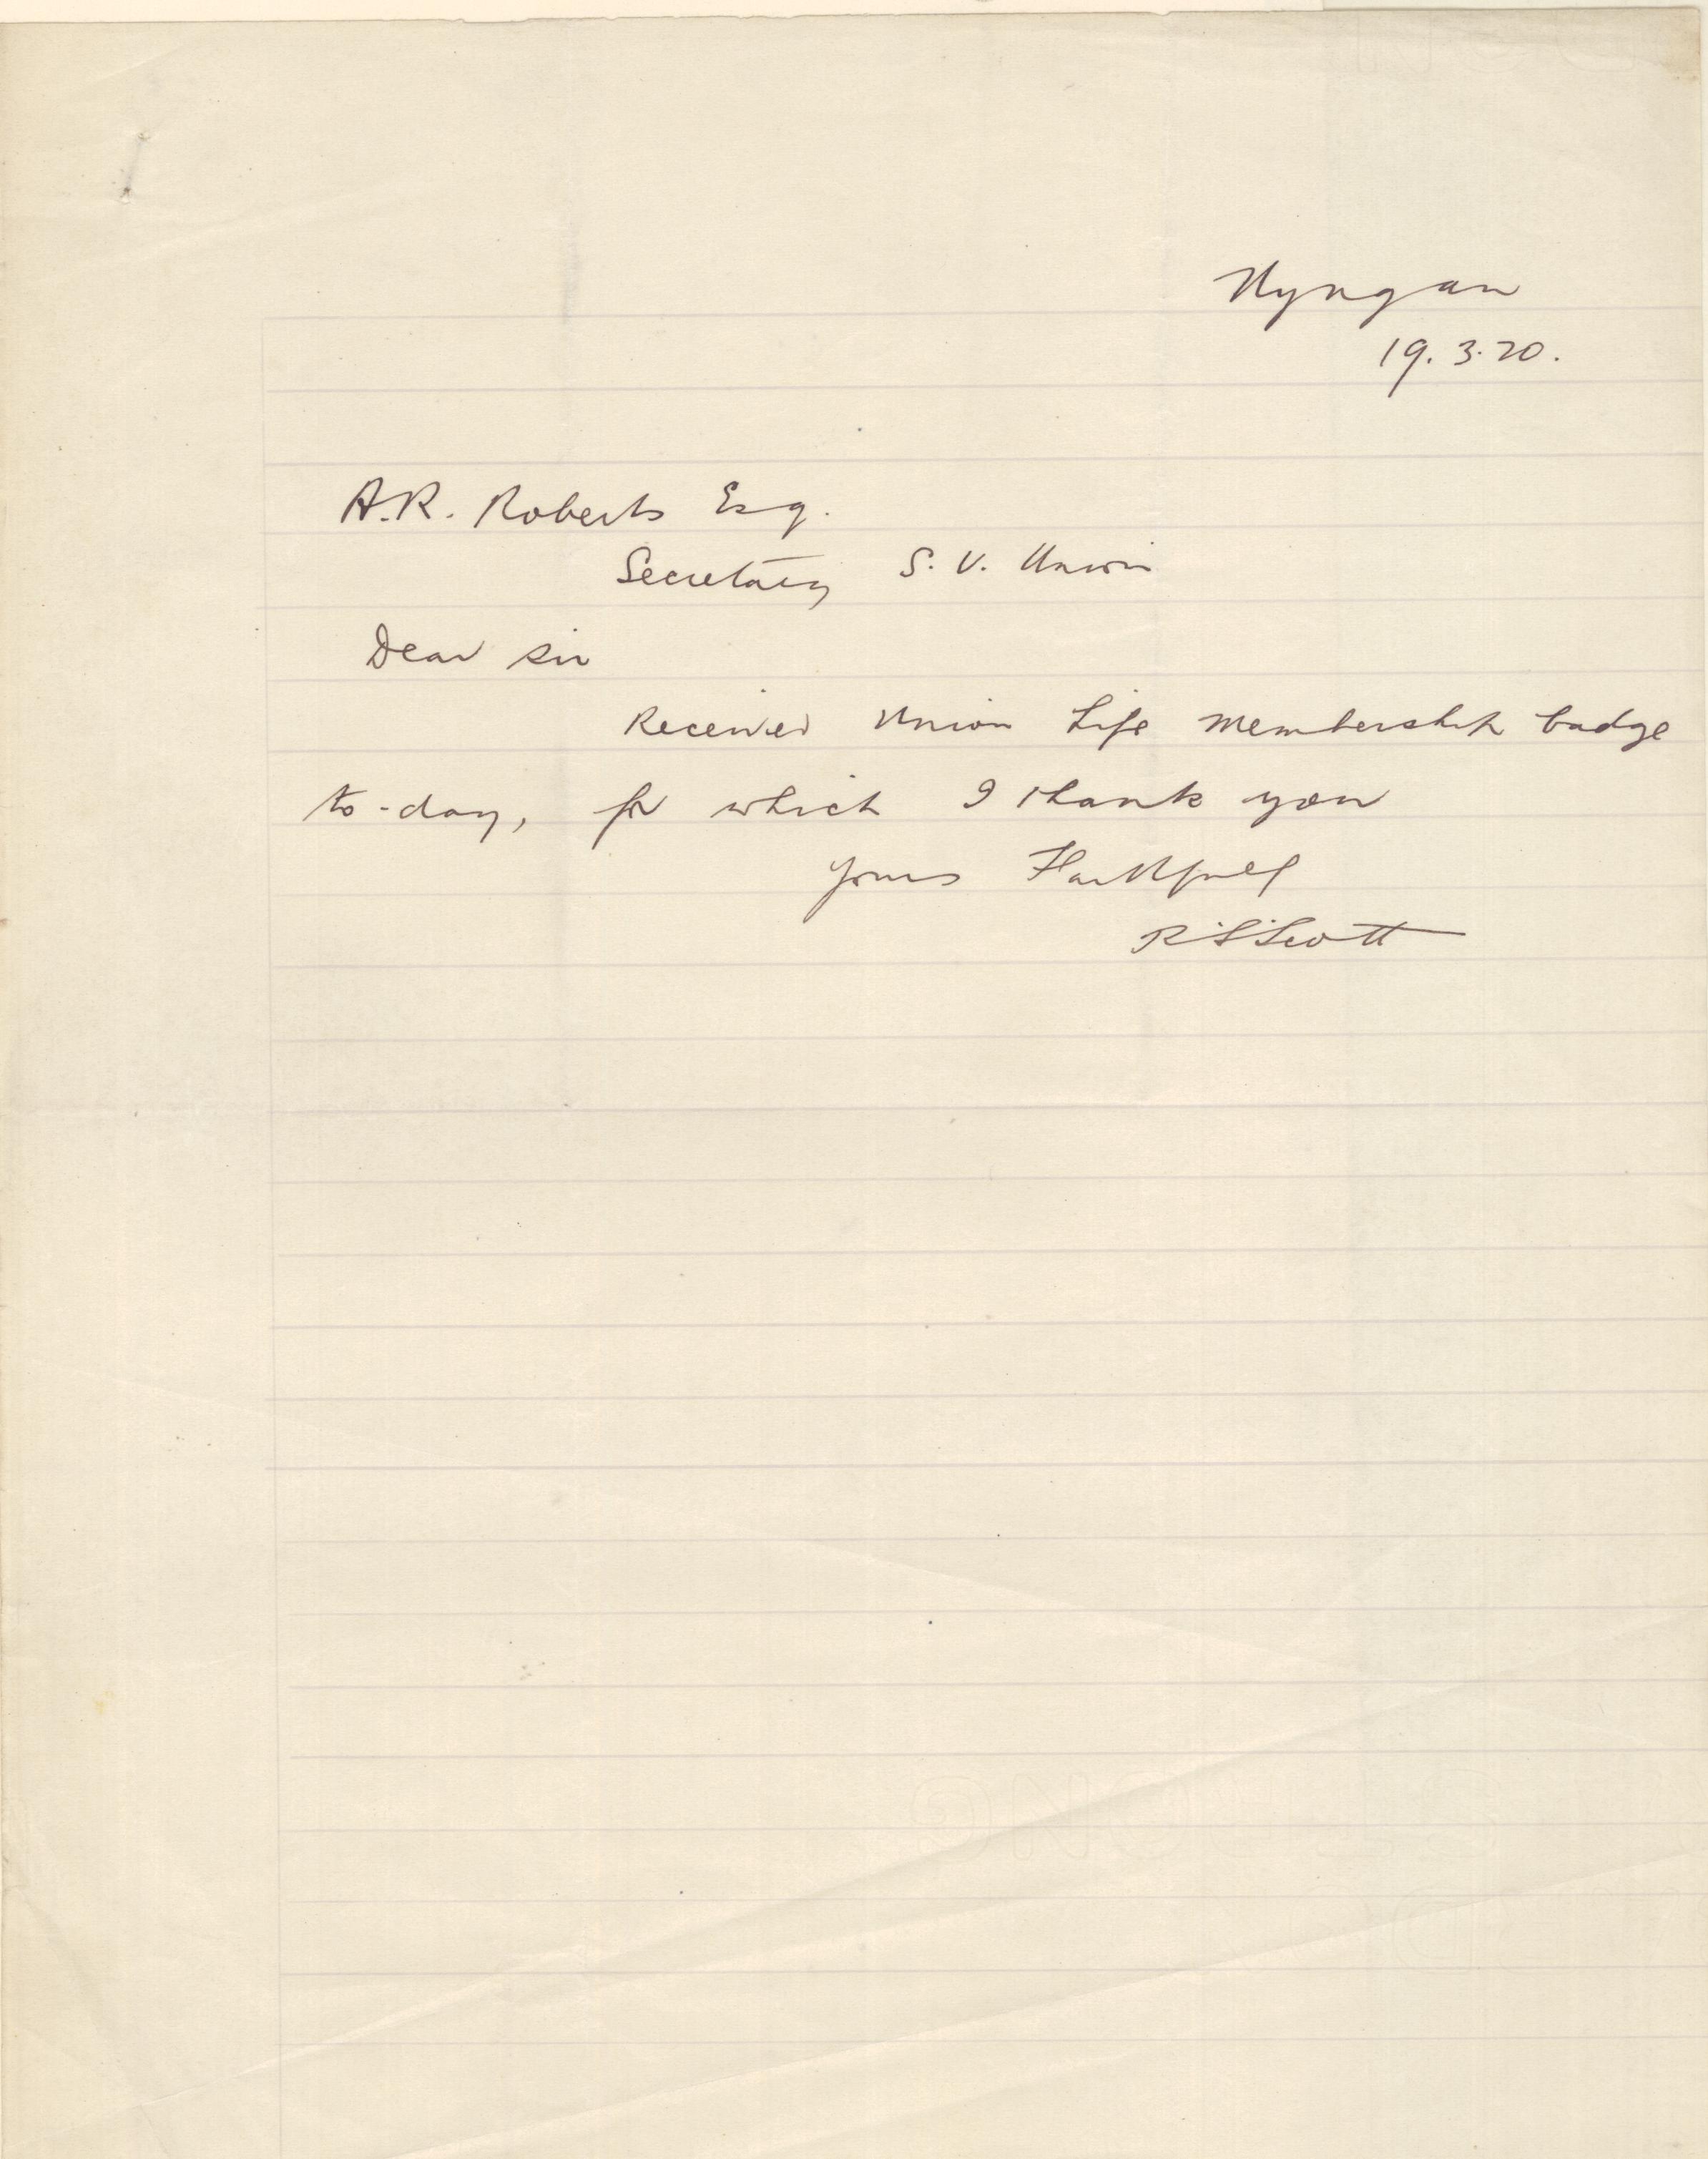 Nyngan
19.3.20.
A.R. Roberts Esq.
Secretary S.V. Union
Dear Sir
Received Union Life Membership badge
to-day, for which I thank you
Yours Faithfully
R S Scott